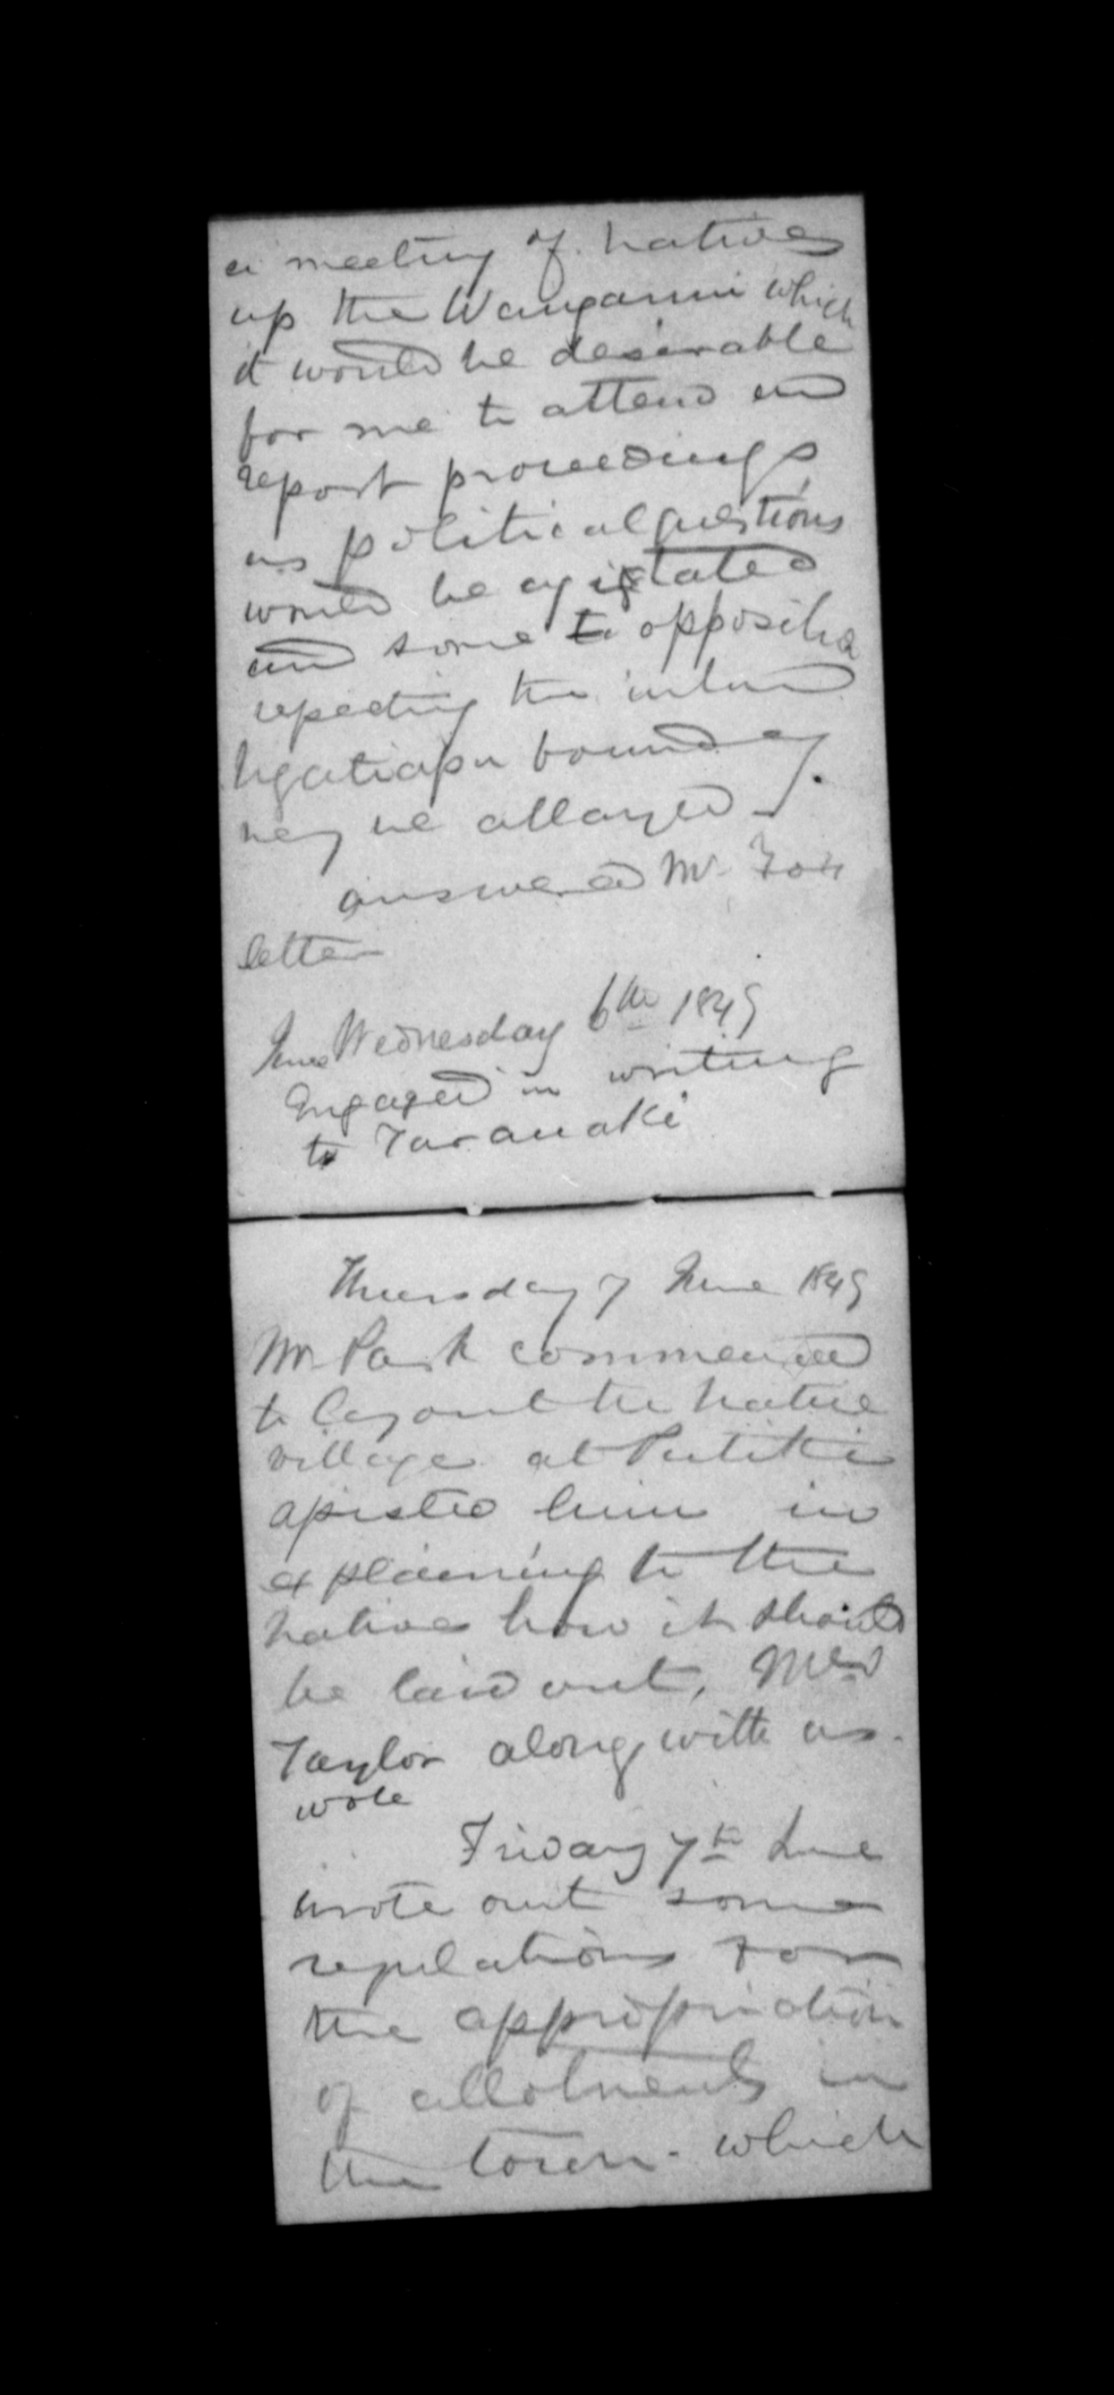 a meeting of natives
up the Wanganui which
it would be desirable
for me to attend and
report proceedings
as political questions
would be agitated
and some to opposition
repecting the inland
Ngatiapa boundary
may be allayed.
answered Mr Fox
letter
June Wednesday 6th 1849
Engaged in writing
to Taranaki
Thursday 7 June 1849
Mr Park commenced
to lay out the native
village at Putiki
assisted him in
explaining to the
natives how it should
be laid out,
Taylor along with us.
wrote
Friday 7th June
wrote out some
regulations for
the appropriation
of allotments in
the town. which